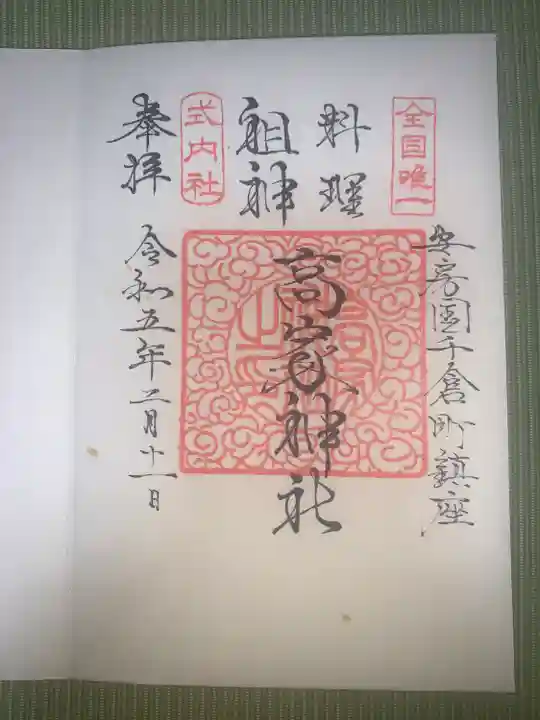 全国唯一
安房国千倉町鎮座
料理
祖神
高家神社
式内社
奉拝
令和五年二月十一日